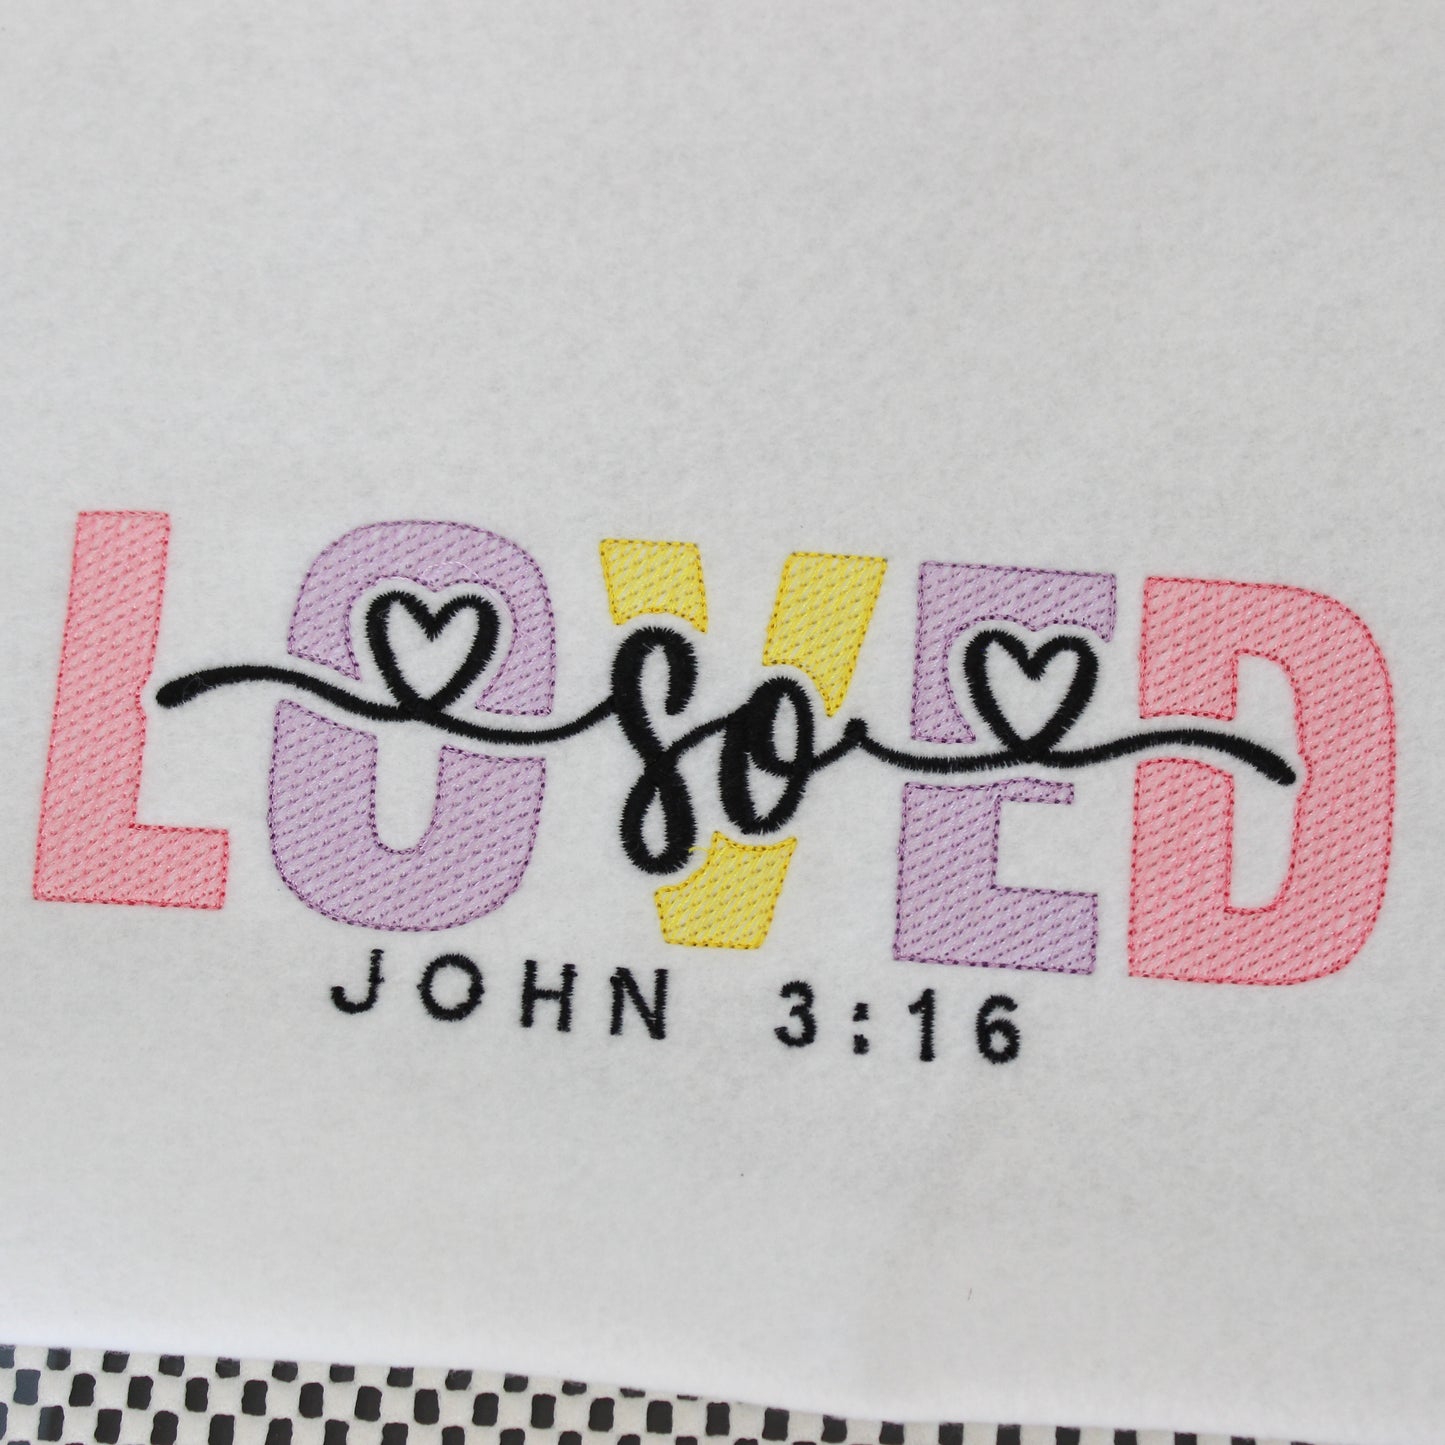 LOVED
so
JOHN 3:16